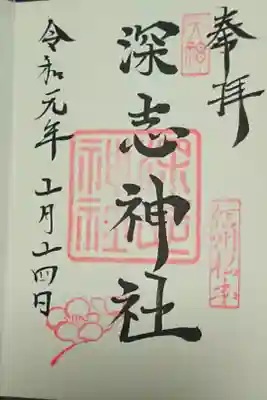 奉拝
天神
信州松本
深志神社
深志神社
令和元年 五月十四日